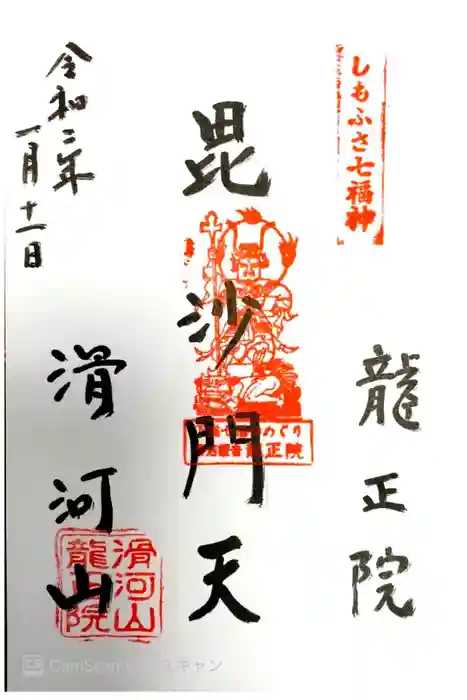 しもふさ七福神
龍正院
毘沙門天
めぐり
龍正院
令和二年
一月十一日
滑河山
滑河山
龍正院
CamScan
キャン